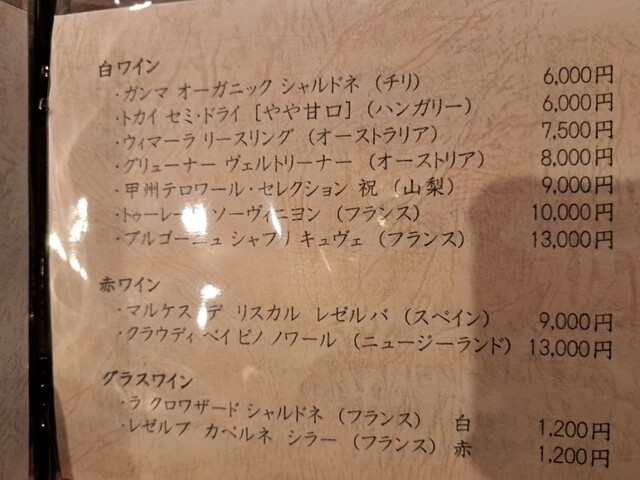 白ワイン
・ガンマ オーガニック シャルドネ (チリ) 6,000円
・トカイ セミ・ドライ [やや甘口] (ハンガリー) 6,000円
・ウィマーラ リースリング (オーストラリア) 7,500円
・グリューナー ヴェルトリーナー (オーストリア) 8,000円
・甲州テロワール・セレクション 祝 (山梨) 9,000円
ソーヴィニヨン (フランス) 10,000円
・ブルゴーニュ キュヴェ (フランス) 13,000円
赤ワイン
・マルケス デ リスカル レゼルバ (スペイン) 9,000円
・クラウディ ベイ ピノ ノワール (ニュージーランド) 13,000円
グラスワイン
・ラ クロワザード シャルドネ (フランス) 白 1,200円
・レゼルブ カベルネ シラー (フランス) 赤 1,200円